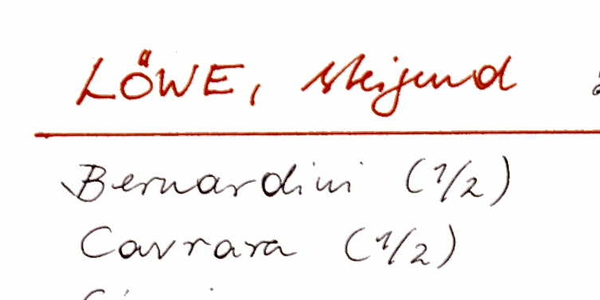 LÖWE, steigend
Bernardini (1/2)
Cavrara (1/2)